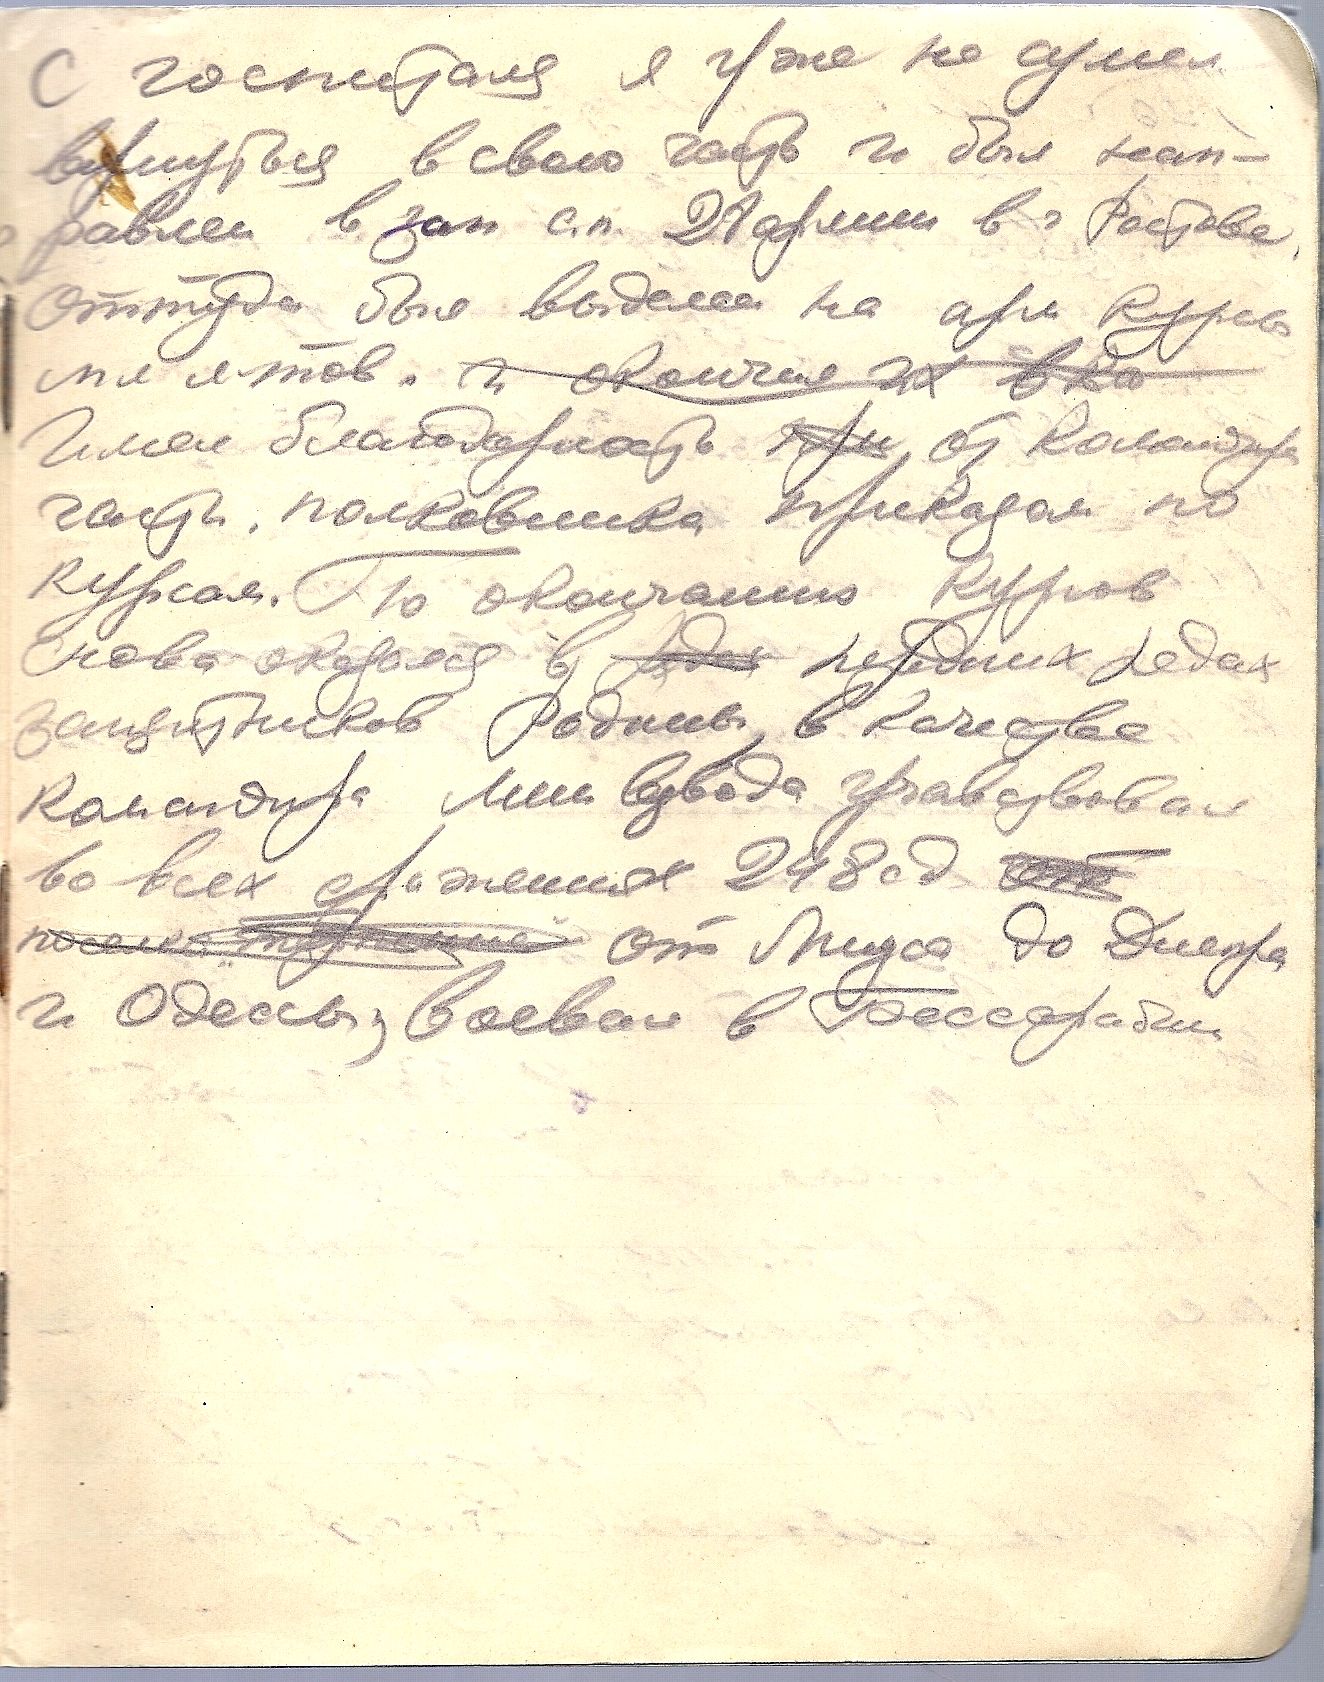 С госпиталя я уже не сумел
вернуться в свою часть и был нап-
равлен в зап с.п. 28 армии в г Ростове.
Оттуда был выделен на арм курсы
мл л-тов. и окончив их в ка
Имел благодарность при от командира
часть. полковника приказом по
курсам. По окончанию курсов
снова оказался в рядах передних редах
защитников Родины, в качестве
командира мин взвода учавствовал
во всех сражениях 248 сд от
от Миуса до Днепра
и Одессы, воевал в Бессарабии